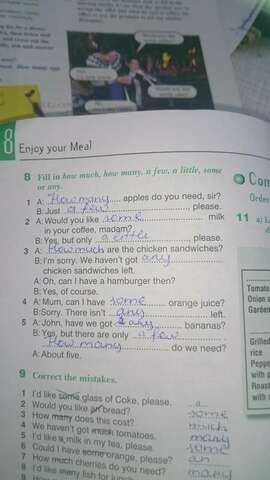 8 Enjoy your Meal
8 Fill in how much, how many, a few, a little, some
or any.
1 A: How many apples do you need, sir?
B: Just a few, please.
2 A: Would you like some milk
in your coffee, madam?
B: Yes, but only a little please.
3 A: How much are the chicken sandwiches?
B: I'm sorry. We haven't got any
chicken sandwiches left.
A: Oh, can I have a hamburger then?
B: Yes, of course.
4 A: Mum, can I have some orange juice?
B: Sorry. There isn't any left.
5 A: John, have we got any bananas?
B: Yes, but there are only a few
How many do we need?
A: About five.
9 Correct the mistakes.
1 I'd like some glass of Coke, please. a
2 Would you like an bread? some
3 How many does this cost? much
4 We haven't got much tomatoes. many
5 I'd like a milk in my tea, please. some
6 Could I have some orange, please? an
7 How much cherries do you need? many
8 I'd like many fish for lunch
Con
Order
11 a)
Tomato
Onion
Garden
Grilled
rice
Peppe
with
Roast
with